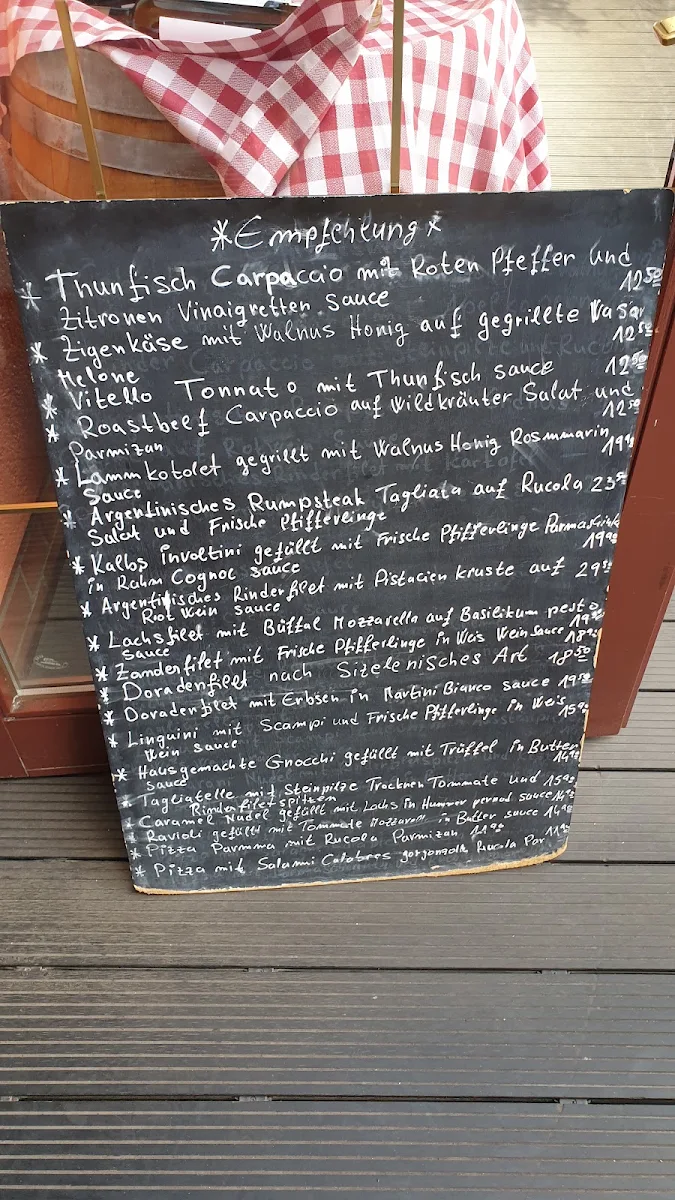 *Empfehlung*
* Thunfisch Carpaccio mit Roten Pfeffer und
Zitronen Vinaigretten Sauce 12,50
* Zigenkäse mit Walnus Honig auf gegrillte Wasar
Melone 12,50
* Vitello Tonnato mit Thunfisch sauce 12,50
* Roastbeef Carpaccio auf Wildkräuter Salat und
Parmizan 12,50
* Lammkotolet gegrillt mit Walnus Honig Rosmmarin
Sauce 19,90
* Argentinisches Rumpsteak Tagliata auf Rucola 23,50
Salat und Frische Pfifferlinge
* Kalbs involtini gefüllt mit Frische Pfifferlinge
in Rahm Cognac sauce 19,90
* Argentinisches Rinderfilet mit Pistacien kruste auf 29,50
Riot Wein sauce
* Lachsfilet mit Büffal Mozzarella auf Basilikum pesto
sauce 19,50
* Zanderfilet mit Frische Pfifferlinge in Weis Wein sauce 18,90
* Doradenfilet nach Sizelenisches Art 18,50
* Doradenfilet mit Erbsen in Martini Bianco sauce 19,50
* Linguini mit Scampi und Frische Pfifferlinge in Weis
Wein sauce 15,90
* Hausgemachte Gnocchi gefüllt mit Trüffel in Butter
sauce 14,90
* Tagliatelle mit Steinpilze Trocknen Tommate und 15,90
Rinderfiletspitzen
* Caramel Nudel gefüllt mit Lachs in Hummer pernod sauce 14,90
* Ravioli gefüllt mit Tommate Mozzarell in Butter sauce 14,90
* Pizza Parmma mit Rucola Parmizan 11,90
* Pizza mit Salami Calabres gorgonzola Rucola Par 11,90